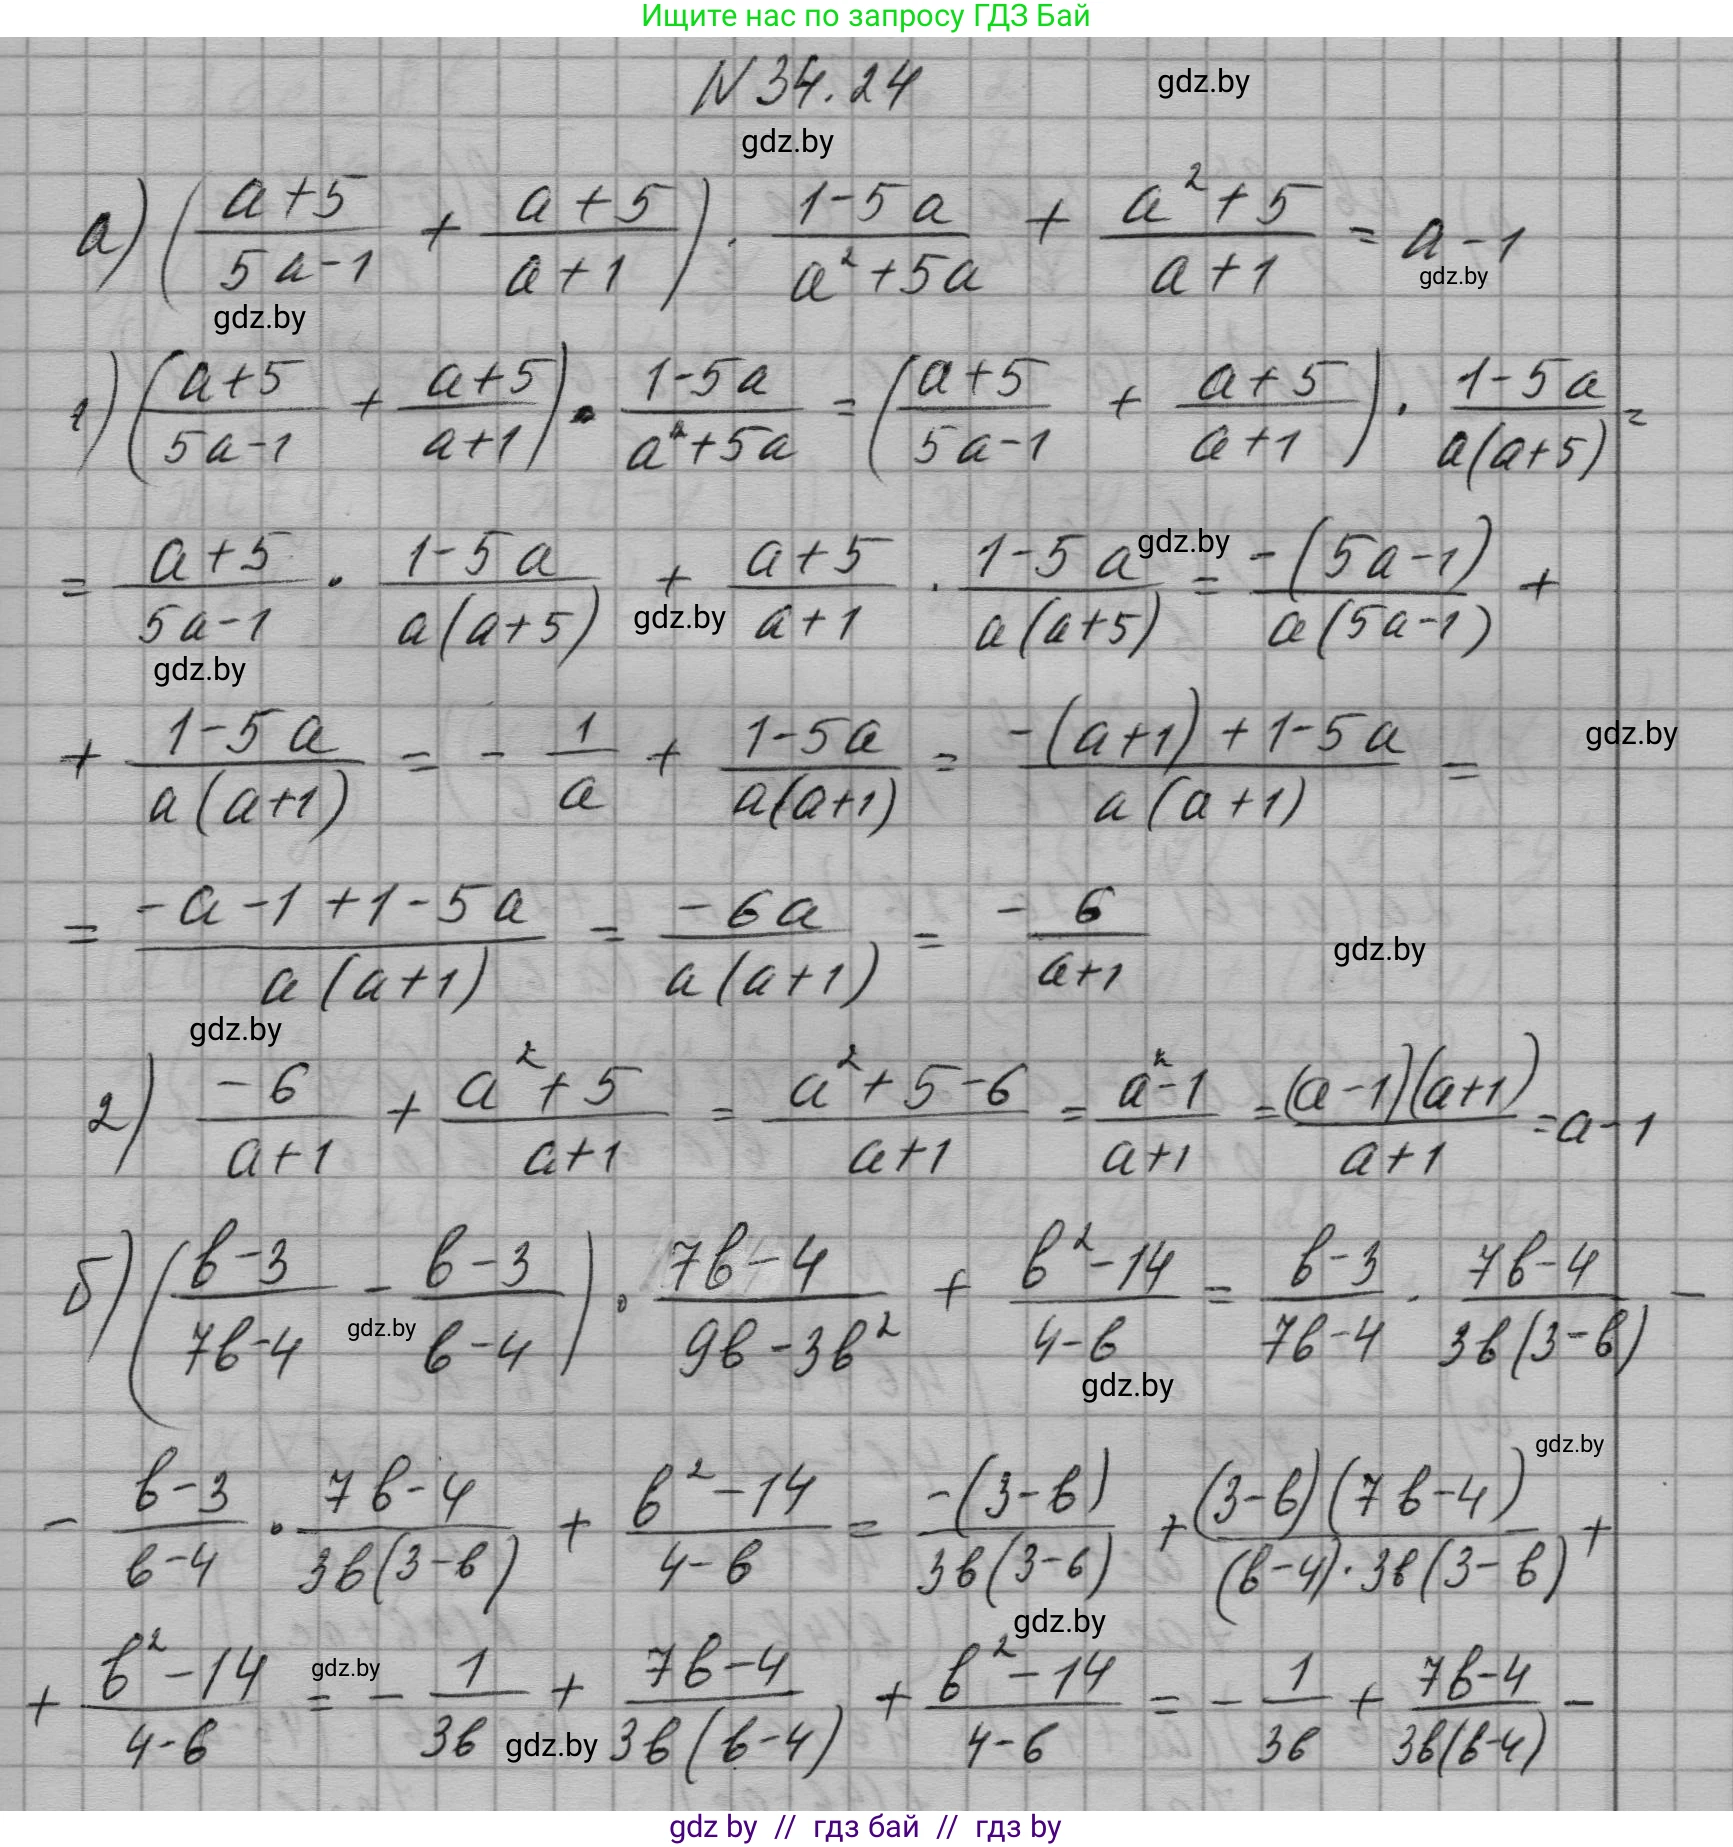 Ищите нас по запросу ГДЗ Бай
N 34.24
gdz.by
gdz.by
а) ( (a+5)/(5a-1) + (a+5)/(a+1) ) · (1-5a)/(a²+5a) + (a²+5)/(a+1) = a-1
gdz.by
gdz.by
1) ( (a+5)/(5a-1) + (a+5)/(a+1) ) · (1-5a)/(a²+5a) = ( (a+5)/(5a-1) + (a+5)/(a+1) ) · (1-5a)/(a(a+5)) =
= (a+5)/(5a-1) · (1-5a)/(a(a+5)) + (a+5)/(a+1) · (1-5a)/(a(a+5)) = -(5a-1)/(a(5a-1)) +
gdz.by
gdz.by
gdz.by
+ (1-5a)/(a(a+1)) = - 1/a + (1-5a)/(a(a+1)) = (-(a+1)+1-5a)/(a(a+1)) =
gdz.by
= (-a-1+1-5a)/(a(a+1)) = (-6a)/(a(a+1)) = - 6/(a+1)
gdz.by
gdz.by
2) (-6)/(a+1) + (a²+5)/(a+1) = (a²+5-6)/(a+1) = (a²-1)/(a+1) = ((a-1)(a+1))/(a+1) = a-1
б) ( (b-3)/(7b-4) - (b-3)/(b-4) ) · (7b-4)/(9b-3b²) + (b²-14)/(4-b) = (b-3)/(7b-4) · (7b-4)/(3b(3-b)) -
gdz.by
gdz.by
- (b-3)/(b-4) · (7b-4)/(3b(3-b)) + (b²-14)/(4-b) = (-(3-b))/(3b(3-b)) + ((3-b)(7b-4))/((b-4)·3b(3-b)) +
gdz.by
gdz.by
+ (b²-14)/(4-b) = - 1/(3b) + (7b-4)/(3b(b-4)) + (b²-14)/(4-b) = - 1/(3b) + (7b-4)/(3b(b-4)) -
gdz.by
gdz.by
gdz by // гдз бай // гдз by